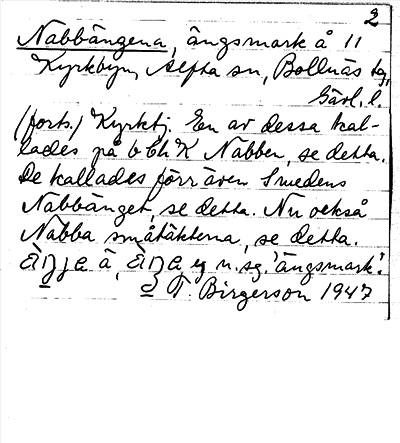 2
Nabbängena, ängsmark å 11
Kyrkbyn, Alfta sn, Bollnäs tg,
Gävl. l.
(forts.) Kyrktj. En av dessa kal-
lades på b Ch K Nabben, se detta.
De kallades förr även Smedens
Nabbänget, se detta. Nu också
Nabba småtäkterna, se detta.
eg n. sg. 'ängsmark'.
T. Birgerson 1947